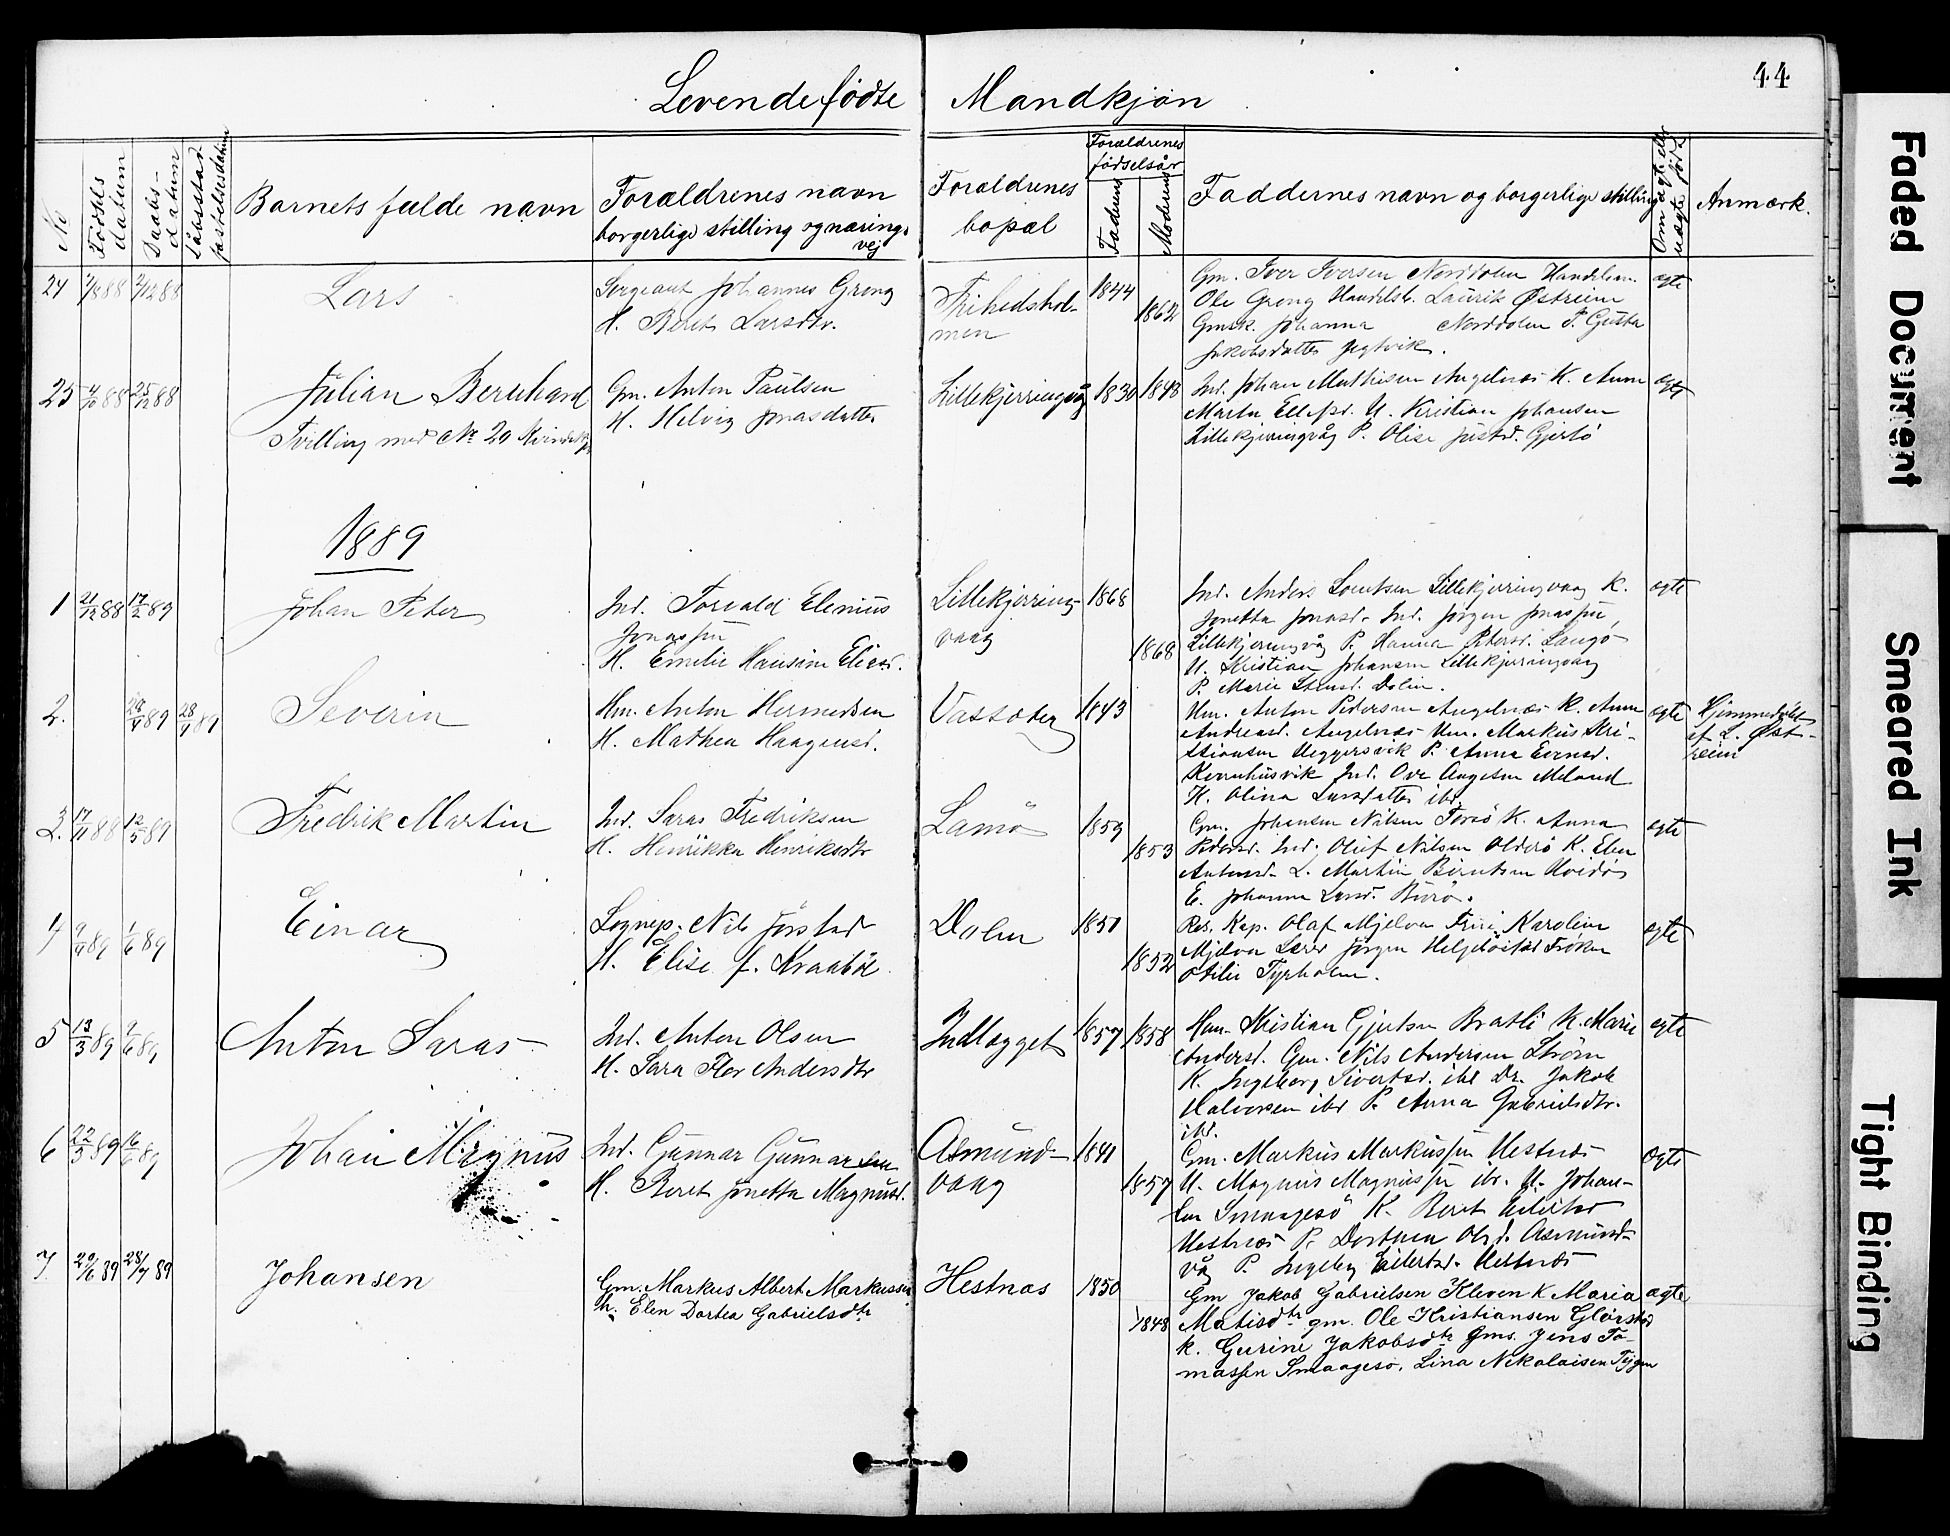 44
Levendefødte Mandkjøn
No
Fødsels datum
Daabs-datum
Dåbsstad-fæstelsesdatum
Barnets fulde navn
Forældrenes navn
borgerlige stilling og nærings
vej
Forældrenes
bopæl
Forældrenes
fødselsår
Faderens
Moderens
Faddernes navn og borgerlige stilling
Om ægte eller
uægte født
Anmærk.
24 88 2/12 88 Lars
Sergeant Johannes Grong
H. Beret Larsdtr.
Frihedshol-
men
1844
1862
Gm. Iver Iversen Norddolm Handelsm.
Ole Grong Handelsb. Laurits Østreim
Gmsk. Johanna Norddolm P. Gusta
Jakobsdatter
ægte
25 4/10 88 25/12 88 Julian Bernhard
Tvilling med No 20 Kvindekj
Gm. Anton Paulsen
H. Helvig Jonasdatter
Lillekjerringvåg
1830 1843
Ind. Johan Mathisen Angelnæs K. Anne
Marta U. Kristian Johansen
Lillekjerringvåg P. Olise Gjerlö
ægte
1889
1 21/12 88 17/2 89 Johan Peter
Ind. Torvald Elenius
Jonassen
H. Emelie Hansine Eliasd.
Lillekjerring-
vaag
1868
1868
Ind. Anders Lillekjerringvaag K.
Jonetta Jonasd. Ind. Jørgen Jonassen,
Lillekjerringvåg P. Hanna Petersd. Langö
U. Kristian Johansen Lillekjerringvaag
P. Marie Dolm.
ægte
2. 28/4 89 28/4 89 Severin
Hm. Anton Hermedsen
H. Mathea Haagensd.
Vassæter
1843
Hm. Anton Pedersen Angelnæs K. Anne
Andreasd. Angelnæs Hm. Markus Kri-
stiansen P. Anna Evensd.
Ind. Ove Aagesen Meland
K. Olina Larsdatter ibd.
ægte
Hjemmedøbt
af L. Øst-
reim
3. 17/11 88 12/5 89 Fredrik Martin
Ind. Saras Fredriksen
H. Henrikka Henriksdtr
Lamö
1859
1853
Gm. Johansen Nilsen K. Anna
Pedersd. Ind. Oluf Nilsen Olderö K. Elen
Antonsd. L. Martin Berntsen
E. Johanna Larsd.
ægte
4 9/4 89 1/6 89 Einar
Sognep. Nils Jørstad
H. Elise f. Kraaböl
Dolm
1851
1852
Res. Kap. Olaf Mjelva Karoline
Mjelva Lærer Jörgen Fröken
Otilie Tyrholm.
ægte
5 13/3 89 2/6 89 Anton Saras
Ind. Anton Olsen
H. Sara Flor Andersdtr
Indlægget
1857 1858
Hm. Kristian Gjertsen Bratli K. Marie
Andersd. Gm. Nils Andersen Ström
K. Ingeborg Sivertsd. ibd Dr. Jakob
Halvorsen ibd P. Anna Gabrielsdtr.
ibd.
ægte
6 22/5 89 16/6 89 Johan Magnus
Ind. Gunnar Gunnarsen
H. Beret Jonetta Magnusd.
Asmund-
vaag
1841
1857
Gm. Markus Markussen Hestnæs
U. Magnus Magnussen ibd. U. Johan-
Smaagesö K. Beret
Hestnæs P. Dorthea Olsd. Asmund-
våg P. Ingeborg Eilertsd. Hestnæs
ægte
7. 20/6 89 28/7 89 Johansen
Gm. Markus Albert Markussen
h. Elen Dortea Gabrielsdtr
Hestnæs
1850
1848
Gm Jakob Gabrielsen Kleven K Maria
Matisdtr gm. Ole Kristiansen Glørstad
K. Gurine Jakobsdtr Gms. Jens To-
massen Smaagesø, Lina Nekolaisen
ægte
Faded Document
Smeared Ink
Tight Binding